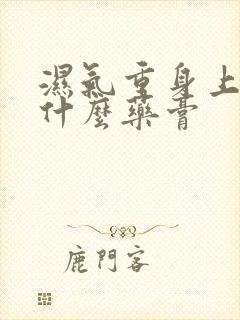 濕氣重身上
什麼藥膏
鹿門客